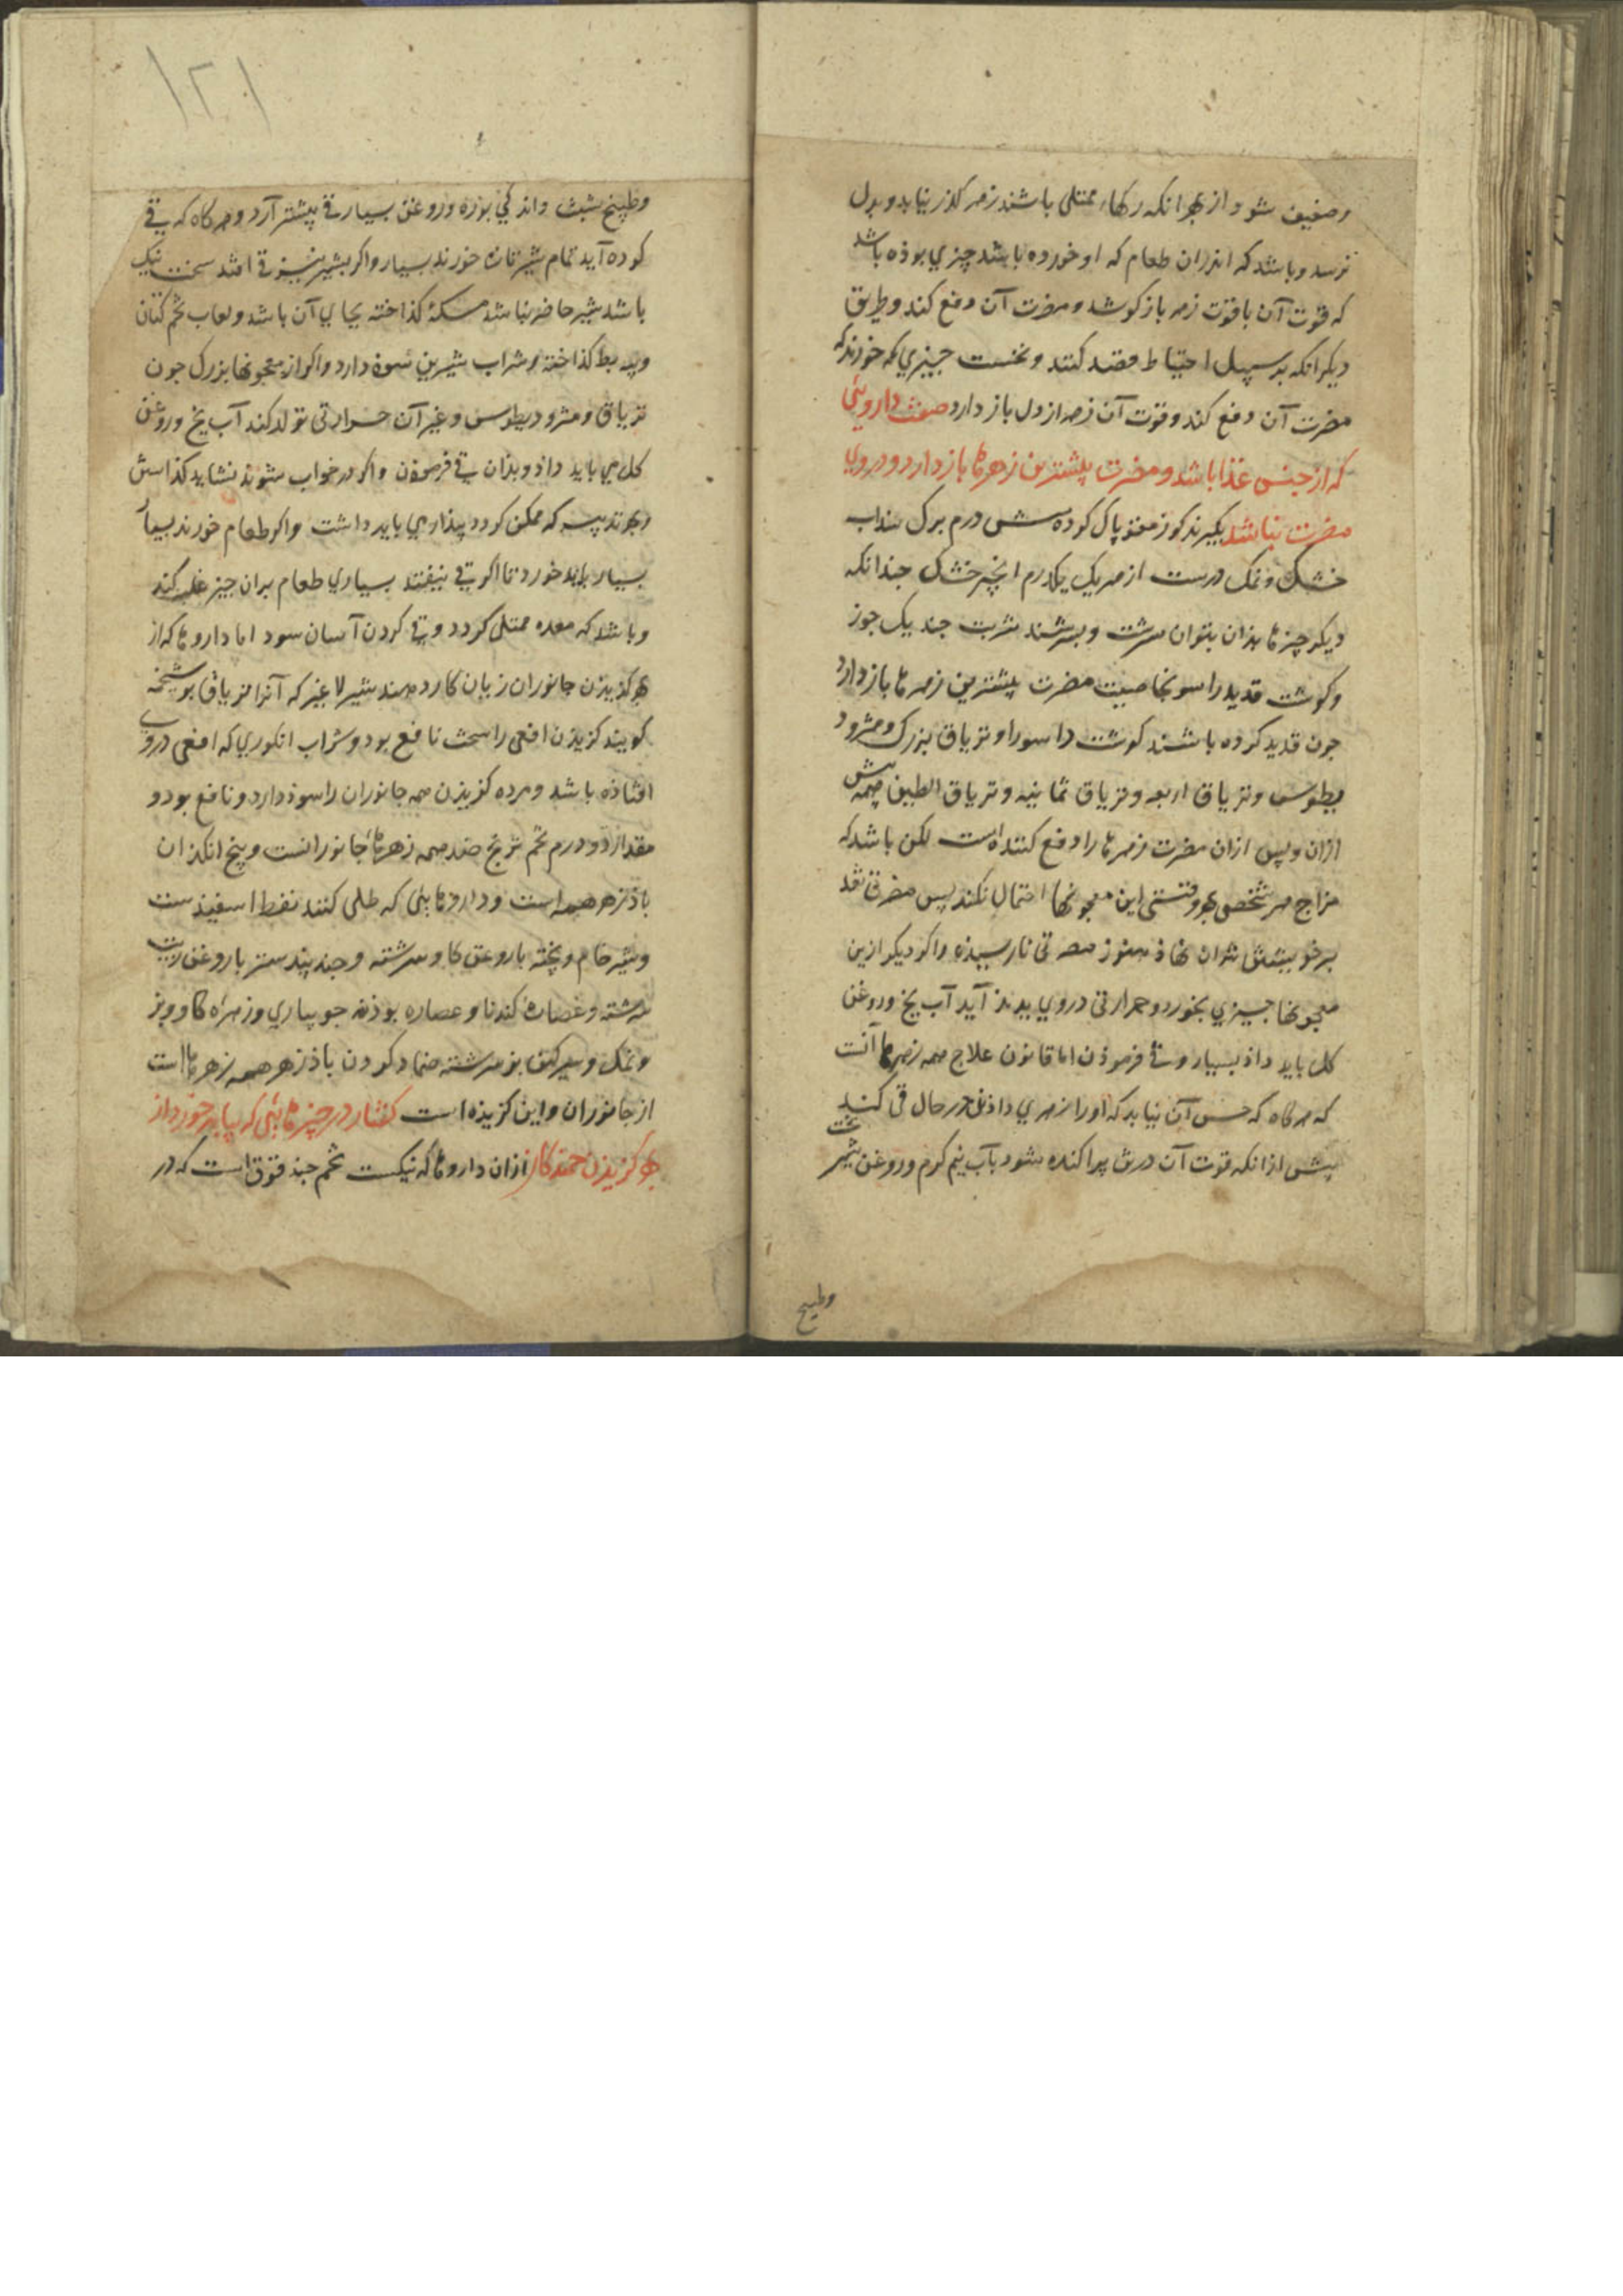 وضعیف شود از بهر انکه رکهاء ممتلی باشند زهر کذر نیابد و بدل
نرسد و باشد که اندران طعام که او خورده باشد چیزي بوذه باشد
که قوت آن با قوت زهر باز کوشد و مضرت آن دفع کند و طریق
دیکر انکه بر سبیل احتیاط قصد کنند و نخست چیزي که خورند که
مضرت آن دفع کند و قوت آن زهر از دل باز دارد صفت داروئی
که از جنس غذا باشد و مضرت بیشترین زهرها باز دارد و دروي
مضرت نباشد بکیرند کوز مغز پاک کرده شش درم برک سداب
خشک و نمک درست از هر یک یکدرم انجیر خشک چندانکه
دیکر چیزها بذان بتوان سرشت و بسرشند شربت چند یک جوز
و کوشت قدید راسو بخاصیت مضرت بیشترین زهرها باز دارد
چون قدید کرده باشند کوشت راسو را و تریاق بزرک و مثرود
یطوس و تریاق اربعه و تریاق ثمانیه و تریاق الطین همه پیش
ازان و پس ازان مضرت زهرها را دفع کننده است لکن باشد که
مزاج هر شخص بهر وقتی این معجونها احتمال نکند پس مضرتی نقد
بر خویشتن نتوان نهاذ هنوز مضرتی نارسیده و اکر دیکر ازین
معجونها چیزي بخورد و حرارتی دروي پدید آید آب یخ و روغن
کل باید داذ بسیار و قی فرموذن اما قانون علاج همه زهرها آنست
که هر کاه که حس آن بیابد که او را زهري داذند در حال قی کند
پیش از انکه قوت آن در تن پراکنده شود بآب نیم کرم و روغن شیر پخت
وطبیخ
۱۲۱
وطبیخ شبث و اندکي بوره و روغن بسیار قی بیشتر آرد و هر کاه که قی
کرده آید تمام شیر تازه خورند بسیار و اکر بشیر نیز قی افتد سخت نیک
باشد شیر حاضر نباشد مسکۀ کذاخته بجاي آن باشد و لعاب تخم کتان
و پیه بط کذاخته و شراب شیرین سود دارد و اکر از معجونها بزرک چون
تریاق و مثرودیطوس و غیر آن حرارتی تولد کند آب یخ و روغن
کل می باید داذ و بذان قی فرموذن و اکر در خواب شوند نشاید کذاشتن
و بهر تدبیر که ممکن کردد بیذار مي باید داشت و اکر طعام خورند بسیار
بسیار باید خورد تا اکر قی نیفتد بسیاري طعام بران چیز غلبه کند
و باشد که معده ممتلی کردد و قی کردن آسان شود اما داروها که از
بهر کزیذن جانوران زیان کار دهند شیر لاغیر که آنرا تریاق بوشنجه
کویند کزیذن افعی را سخت نافع بود و شراب انکوري که افعی دروي
افتاذه باشد و مرده کزیذن همه جانوران را سوذ دارد و نافع بود و
مقدار دو درم تخم ترنج ضد همه زهرهاء جانورانست و بیخ انکذان
باذزهر همه است و داروهائی که طلی کنند نفط اسفیذ ست
و شیر خام و پخته با روغن کاو سرشته و جندبیدستر با روغن زیت
سرشته و عصارۀ کندنا و عصاره بوذنه جویباري و زهراه کاو و بز
و نمک و سرکین بز سرشته ضماد کردن باذزهر همه زهرها است
از جانوران و این کزیده است کفتار در چیزهائی که بباید خورد از
بهر کزیذن حمندکان ازان داروها که نیکست تخم حندقوق است که در